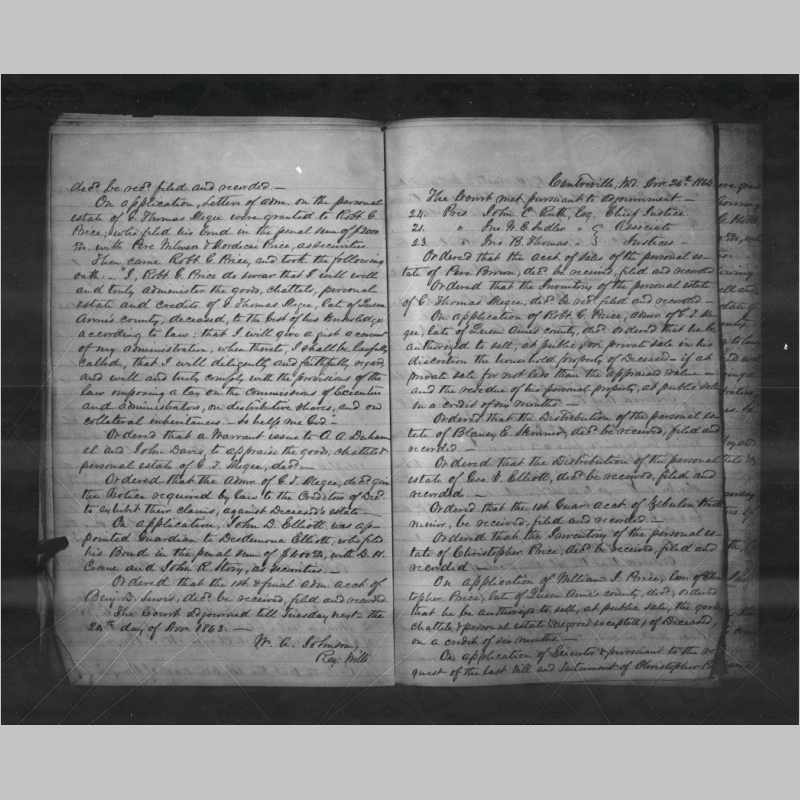 decd. be recd. filed and recorded. —
On application, letters of adm. on the personal
estate of C. Thomas Megee were granted to Robt C.
Price, who filed his bond in the penal sum of
with Pere Wilmer & Mordecai Price, as securities
Then came Robt C. Price, and took the following
oath: — "I, Robt C. Price do swear that I will well
and truly administer the goods, chattels, personal
estate and credits of C. Thomas Megee, late of Queen
Anne's county, deceased, to the best of his knowledge
according to law: that I will give a just account
of my administration, when thereto, I shall be lawfully
called, that I will diligently and faithfully regard
and well and truly comply with the provisions of the
law imposing a tax on the commissions of Executors
and Administrators, on distributive shares, and on
collateral inheritances — So help me God."
Ordered that a Warrant issue to A. A.
and John Davis, to appraise the goods, chattels &
personal estate of C. T. Megee, decd. —
Ordered that the Admr. of C. T. Megee, decd. give
the Notice required by law to the Creditors of Decd.
to exhibit their claims, against Deceased's estate. —
On application, John D. Elliott was ap-
pointed Guardian to Desdemona Elliott, who filed
his Bond in the penal sum of with D. H.
and John R. Story, as securities. —
Ordered that the 1st & final adm. acct. of
Benj. B. Lewis, decd. be received, filed and recorded
The Court Adjourned till Tuesday next — the
24th day of Nov. 1863. —
W. A. Johnson,
Reg. Wills
Centreville, Md. Nov. 24th 1863
The Court met, pursuant to adjournment —
24. Pres. John C. Ruth, Esq. Chief Justice
21. " Jno. W. E. Sudler " Associate
23 " Jno. B. Thomas " Justices —
Ordered that the acct. of sales of the personal es-
tate of Pere Brown, decd. be received, filed and recorded
Ordered that the Inventory of the personal estate
of C. Thomas Megee, decd. be recd. filed and recorded —
On application of Robt C. Price, admr. of C. T. Me-
gee, late of Queen Annes county, decd. ordered that he be
authorized to sell, at public or private sale in his
discretion the household property of Deceased — if at
private sale for not less than the appraised value —
and the residue of his personal property, at public sale
on a credit of six months —
Ordered that the Distribution of the personal es-
tate of Blaney E. Skinner, decd. be received, filed and
recorded —
Ordered that the Distribution of the personal
estate of Geo. E. Elliott, decd. be received, filed and
recorded —
Ordered that the 1st Guar. acct. of Zebulon
minor, be received, filed and recorded. —
Ordered that the Inventory of the personal es-
tate of Christopher Price, decd. be received, filed and
recorded —
On application of William J. Price, Exr. of Chris-
topher Price, late of Queen Anne's county, decd., ordered
that he be authorized to sell, at public sale, the goods
chattels & personal estate (negroes excepted) of Deceased,
on a credit of six months —
On application of Executor & pursuant to the re-
quest of the last will and testament of Christopher